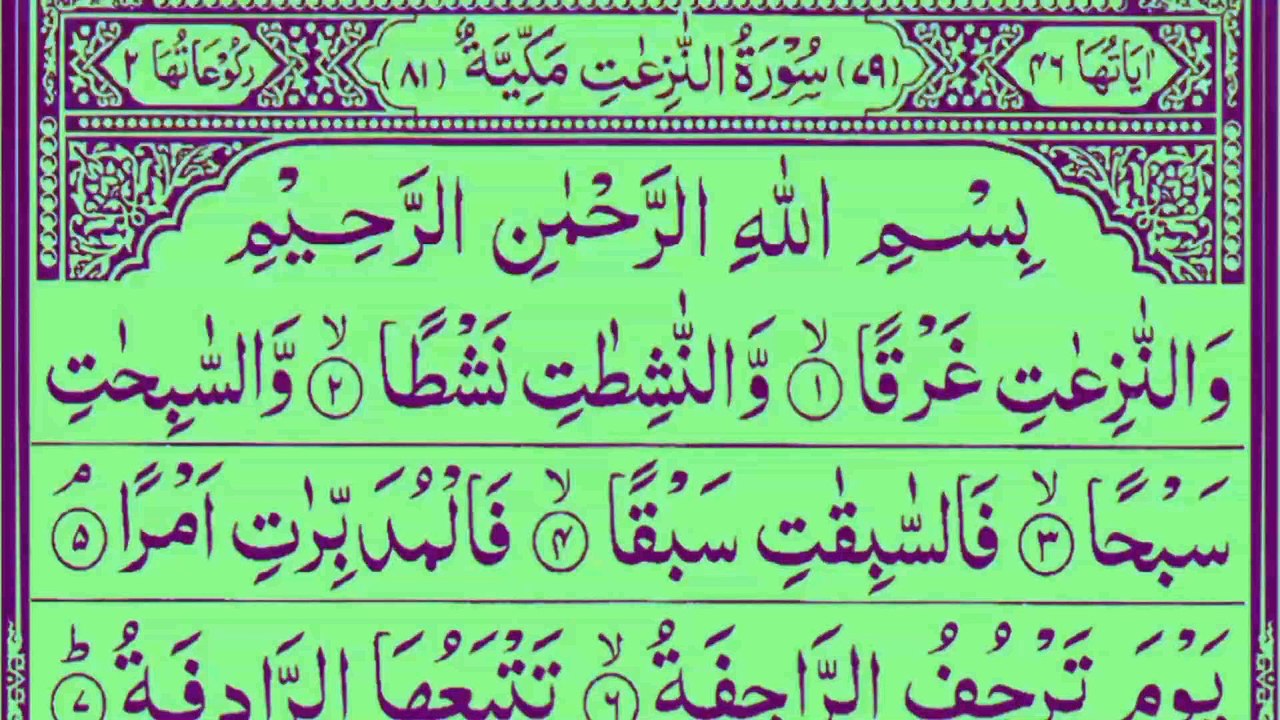 اٰيَاتُهَا ٤٦ (٧٩) سُوْرَةُ النّٰزِعٰتِ مَكِّيَّةٌ (٨١) رُكُوْعَاتُهَا ٢
بِسْمِ اللّٰهِ الرَّحْمٰنِ الرَّحِيْمِ
وَالنّٰزِعٰتِ غَرْقًا ۙ ١ وَّالنّٰشِطٰتِ نَشْطًا ۙ ٢ وَّالسّٰبِحٰتِ
سَبْحًا ۙ ٣ فَالسّٰبِقٰتِ سَبْقًا ۙ ۴ فَالْمُدَبِّرٰتِ اَمْرًا ۘ ۵
يَوْمَ تَرْجُفُ الرَّاجِفَةُ ۙ ٦ تَتْبَعُهَا الرَّادِفَةُ ؕ ٧